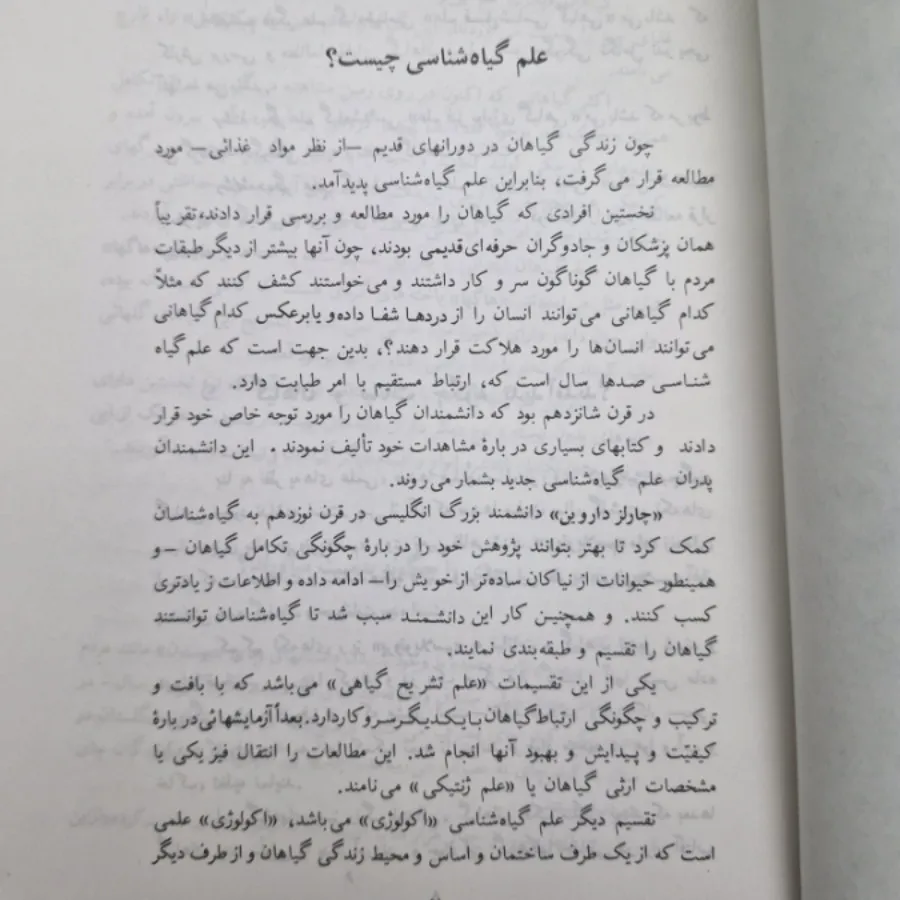 علم گیاه‌شناسی چیست؟
چون زندگی گیاهان در دورانهای قدیم –از نظر مواد غذائی– مورد
مطالعه قرار می‌گرفت، بنابراین علم گیاه‌شناسی پدیدآمد.
نخستین افرادی که گیاهان را مورد مطالعه و بررسی قرار دادند، تقریباً
همان پزشکان و جادوگران حرفه‌ای قدیمی بودند، چون آنها بیشتر از دیگر طبقات
مردم با گیاهان گوناگون سر و کار داشتند و می‌خواستند کشف کنند که مثلاً
کدام گیاهانی می‌توانند انسان را از دردها شفا داده و یا برعکس کدام گیاهانی
می‌توانند انسان‌ها را مورد هلاکت قرار دهند؟، بدین جهت است که علم گیاه
شناسی صدها سال است که، ارتباط مستقیم با امر طبابت دارد.
در قرن شانزدهم بود که دانشمندان گیاهان را مورد توجه خاص خود قرار
دادند و کتابهای بسیاری در بارهٔ مشاهدات خود تألیف نمودند. این دانشمندان
پدران علم گیاه‌شناسی جدید بشمار می‌روند.
«چارلز داروین» دانشمند بزرگ انگلیسی در قرن نوزدهم به گیاه‌شناسان
کمک کرد تا بهتر بتوانند پژوهش خود را در بارهٔ چگونگی تکامل گیاهان –و
همینطور حیوانات از نیاکان ساده‌تر از خویش را– ادامه داده و اطلاعات زیادتری
کسب کنند. و همچنین کار این دانشمند سبب شد تا گیاه‌شناسان توانستند
گیاهان را تقسیم و طبقه‌بندی نمایند.
یکی از این تقسیمات «علم تشریح گیاهی» می‌باشد که با بافت و
ترکیب و چگونگی ارتباط گیاهان با یکدیگر سر و کار دارد. بعداً آزمایشهائی در بارهٔ
کیفیت و پیدایش و بهبود آنها انجام شد. این مطالعات را انتقال فیزیکی یا
مشخصات ارثی گیاهان یا «علم ژنتیکی» می‌نامند.
تقسیم دیگر علم گیاه‌شناسی «اکولوژی» می‌باشد، «اکولوژی» علمی
است که از یک طرف ساختمان و اساس و محیط زندگی گیاهان و از طرف دیگر